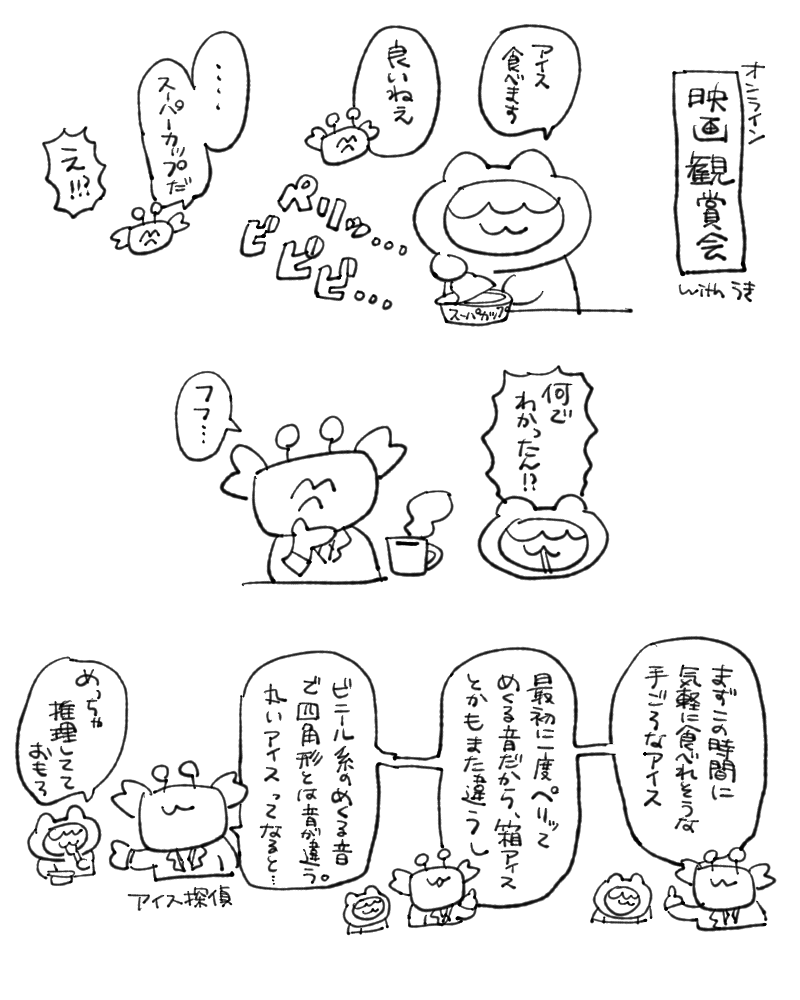 オンライン
映画観賞会
with うき
アイス
食べます
良いねえ
ペリッ…
ビビビ…
スーパーカップ
‥‥
スーパーカップだ
え!!?
何で
わかったん!?
フフ…
まずこの時間に
気軽に食べれそうな
手ごろなアイス
最初に一度ペリッて
めくる音だから、箱アイス
とかもまた違うし
ビニール系のめくる音
で四角形とは音が違う。
丸いアイスってなると…
アイス探偵
めっちゃ
推理してて
おもろ